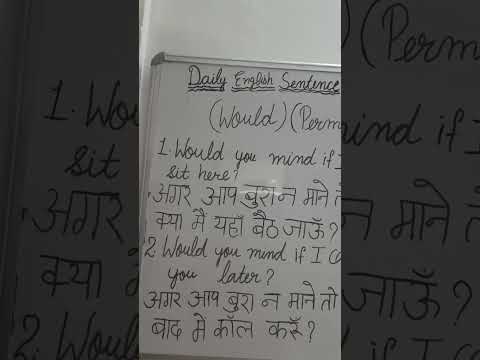 Daily English Sentence
(Would) (Perm
1. Would you mind if I
sit here?
अगर आप बुरा न माने तो
क्या मैं यहाँ बैठ जाऊँ?
2 Would you mind if I ca
you later?
अगर आप बुरा न माने तो
बाद मे कॉल करूँ?